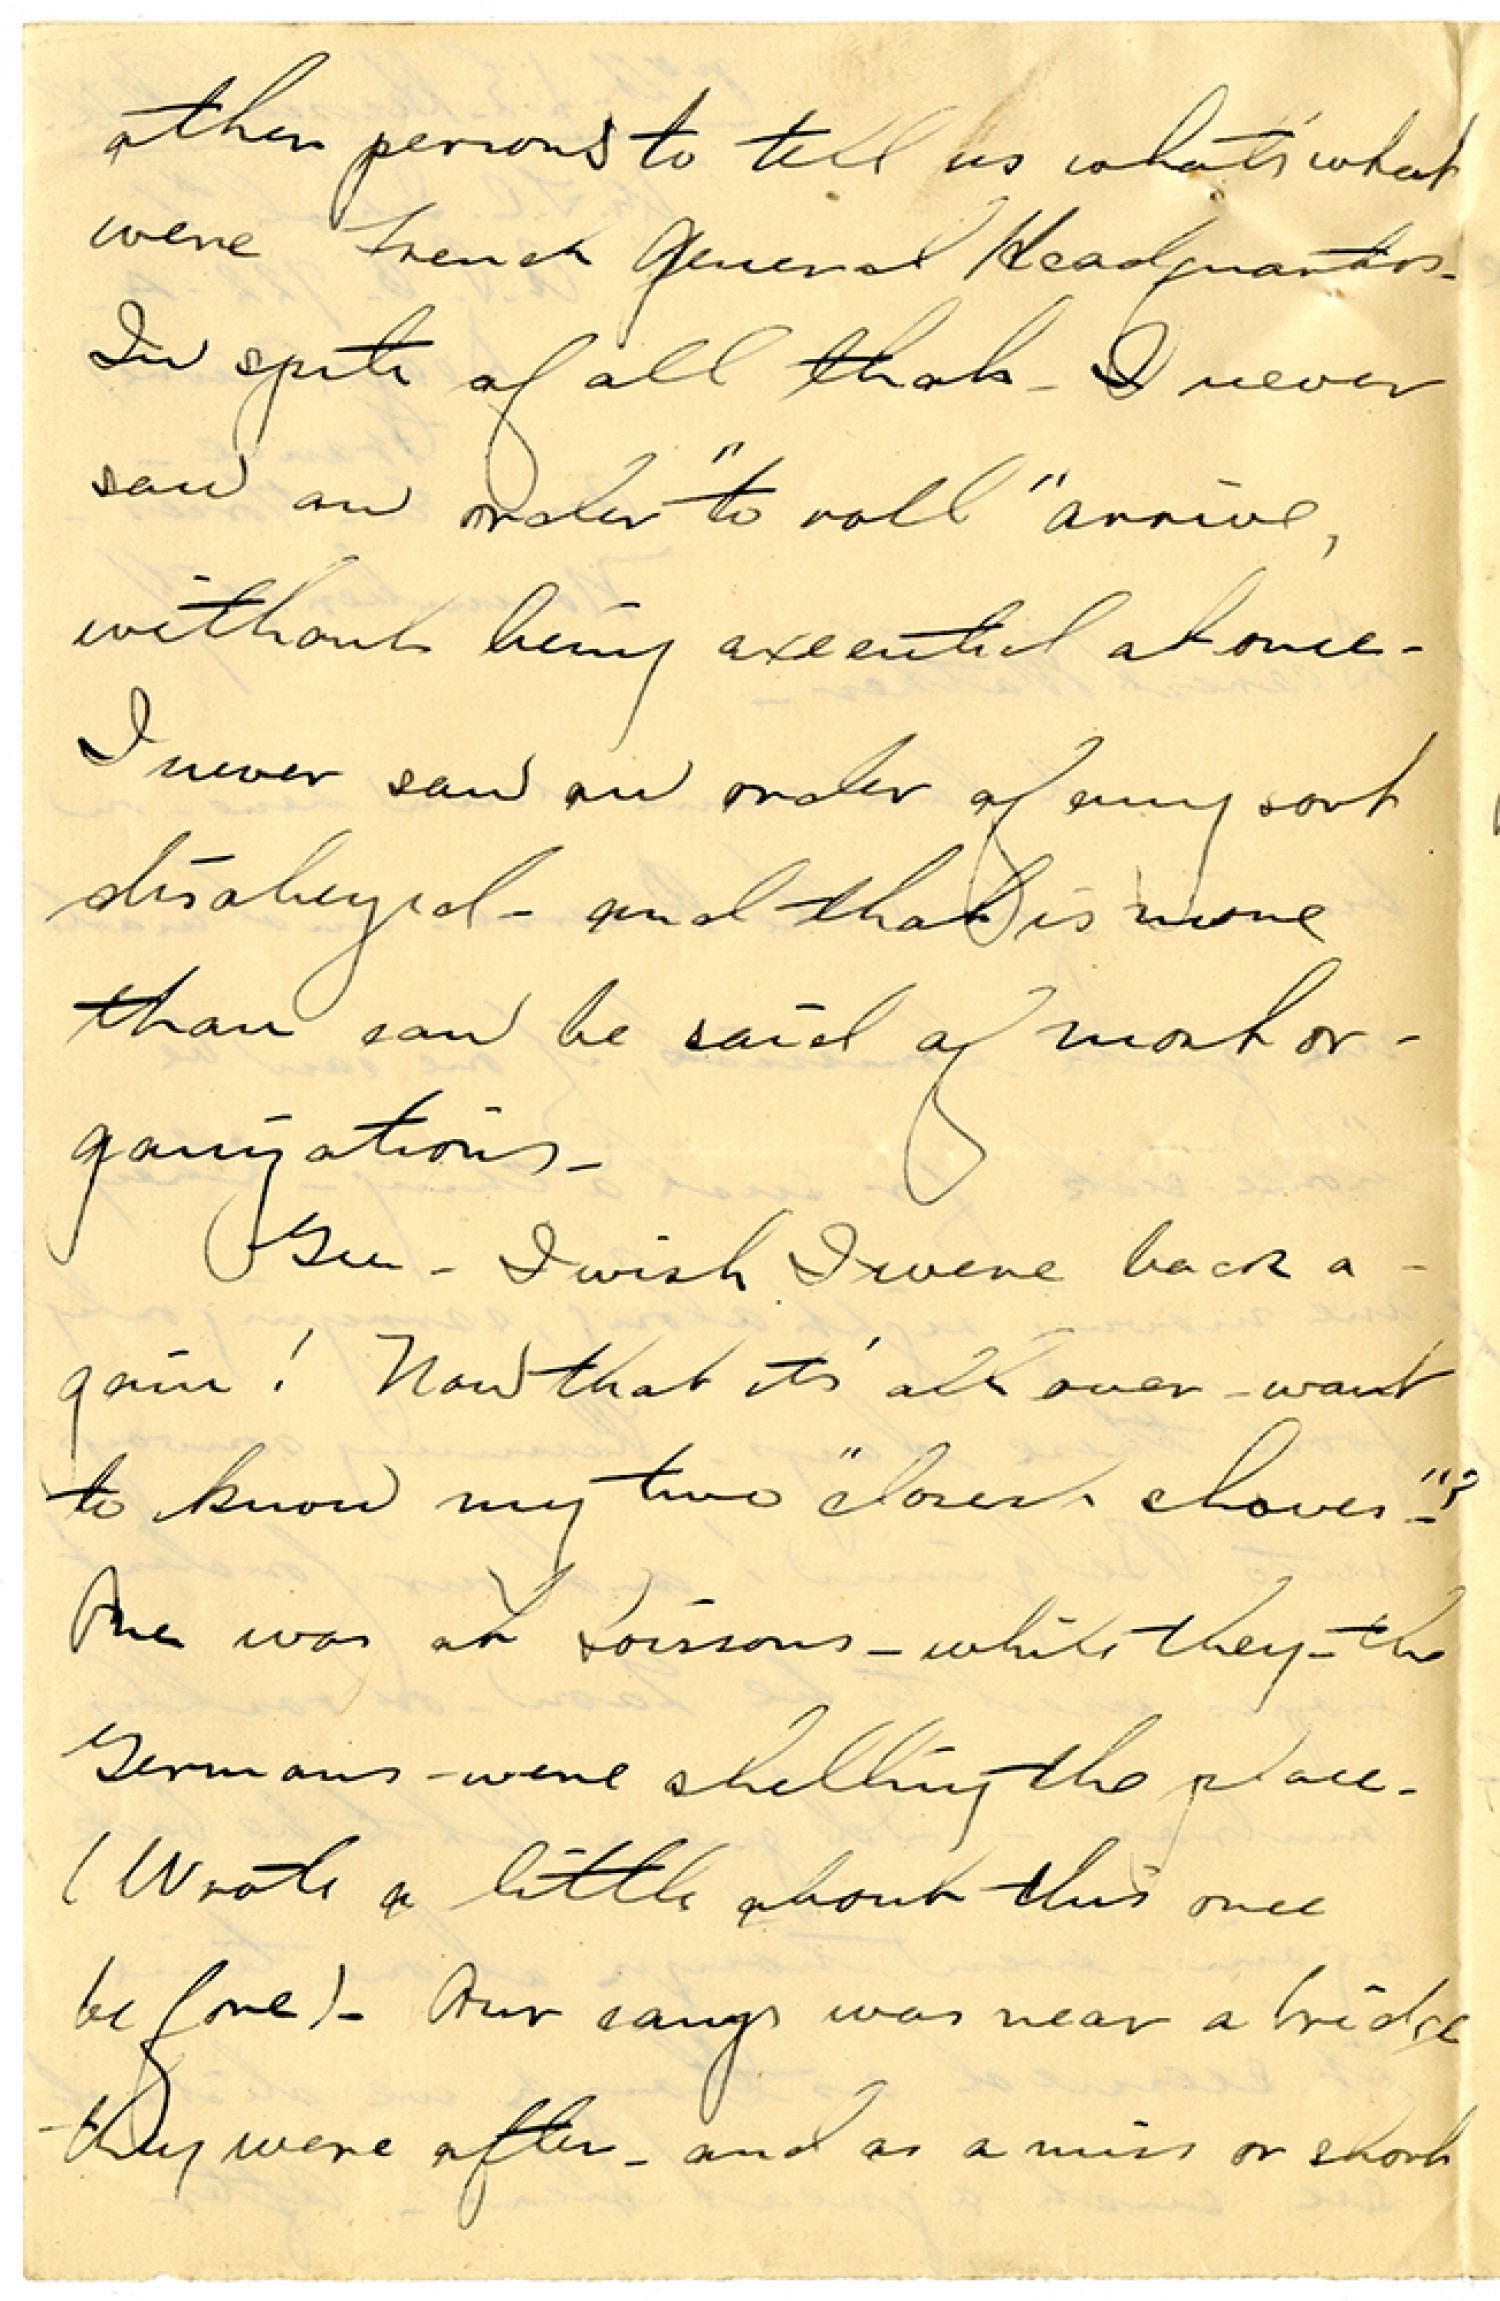 other persons to tell us what's what
were French General Headquarters-
In spite of all that - I never
saw an order "to roll" arrive,
without being executed at once-
I never saw an order of any sort
disobeyed - and that is more
than can be said of most or-
ganizations-
Gee - I wish I were back a-
gain! Now that it's all over - want
to know my two "closest shaves"-?
One was at Soissons - while they - the
Germans - were shelling the place-
(Wrote a little about this once
before)- Our camp was near a bridge
they were after - and as a miss or short